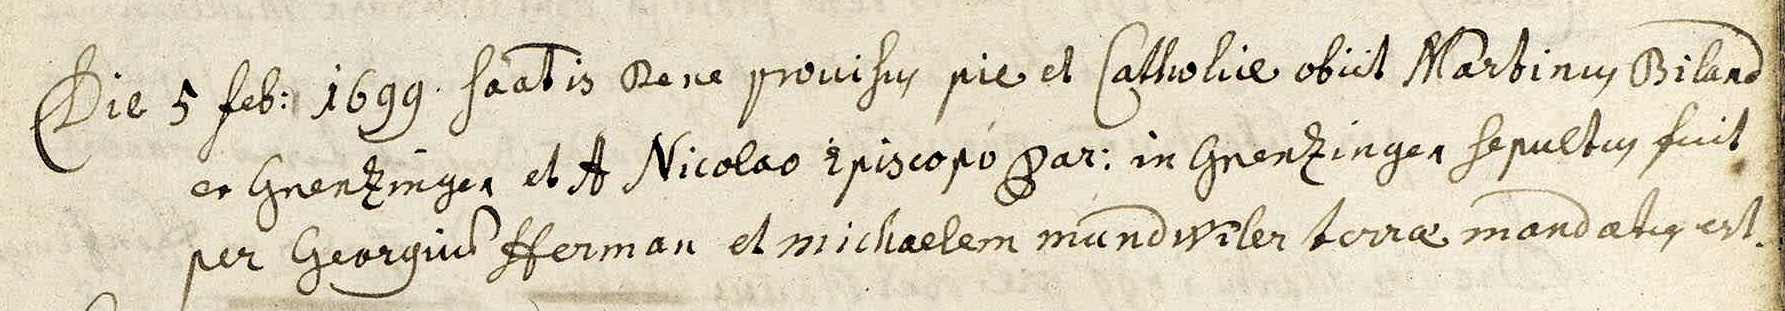 Die 5 feb: 1699. saatis Bene prouisus pie et Catholice obiit Martinus Biland
ex Grenzingen et A Nicolao Episcopo Par: in Grenzingen sepultus fuit
per Georgium Herman et michaelem mundwiler terræ mandatus est.